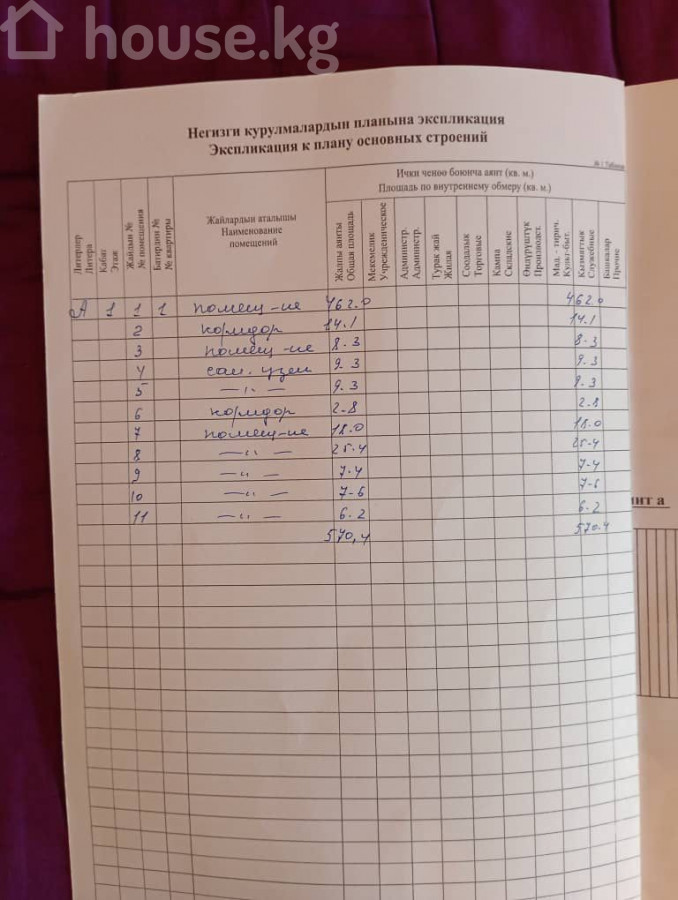 house.kg
Негизги курулмалардын планына экспликация
Экспликация к плану основных строений
№ 1 Таблица
Литерлер
Литера
Кабат
Этаж
Жайдын №
№ помещения
Батирдин №
№ квартиры
Жайлардын аталышы
Наименование
помещений
Ички ченөө боюнча аянт (кв. м.)
Площадь по внутреннему обмеру (кв. м.)
Жалпы аянты
Общая площадь
Мекемелик
Учрежденическое
Администр.
Администр.
Турак жай
Жилая
Соодалык
Торговые
Кампа
Складские
Өндүрүштүк
Производст.
Мад. - тирич.
Культ-быт.
Кызматтык
Служебные
Башкалар
Прочие
А 1 1 1 помещ-ие 462.0 462.0
2 коридор 14.1 14.1
3 помещ-ие 8-3 8-3
4 сан. узел 9.3 9.3
5 —"— 9.3 9.3
6 коридор 2-8 2-8
7 помещ-ие 18.0 18.0
8 —"— 25.4 25.4
9 —"— 7-4 7-4
10 —"— 7-6 7-6
11 —"— 6.2 6.2
570,4 570.4